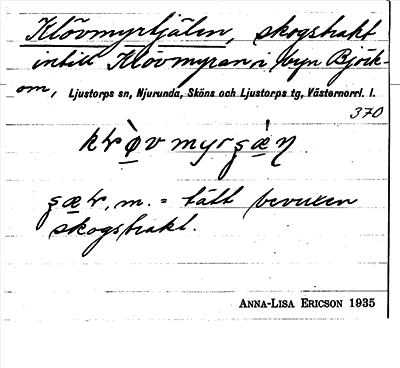 Klövmyrtjälen, skogstrakt
intill Klövmyren i byn Björk-
om, Ljustorps sn, Njurunda, Sköns och Ljustorps tg, Västernorrl. l.
370
, m. = tätt bevuxen
skogstrakt.
ANNA-LISA ERICSON 1935